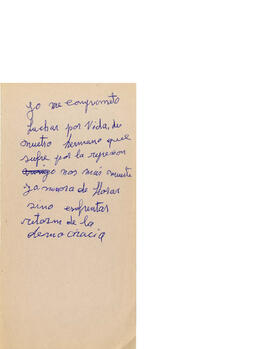 yo me comprometo
luchar por Vida, de
nuetro hermano quel
sufre por la represion
nos más muerte
ya no
de llorar
sino enfrentar
retorm de la
democracia